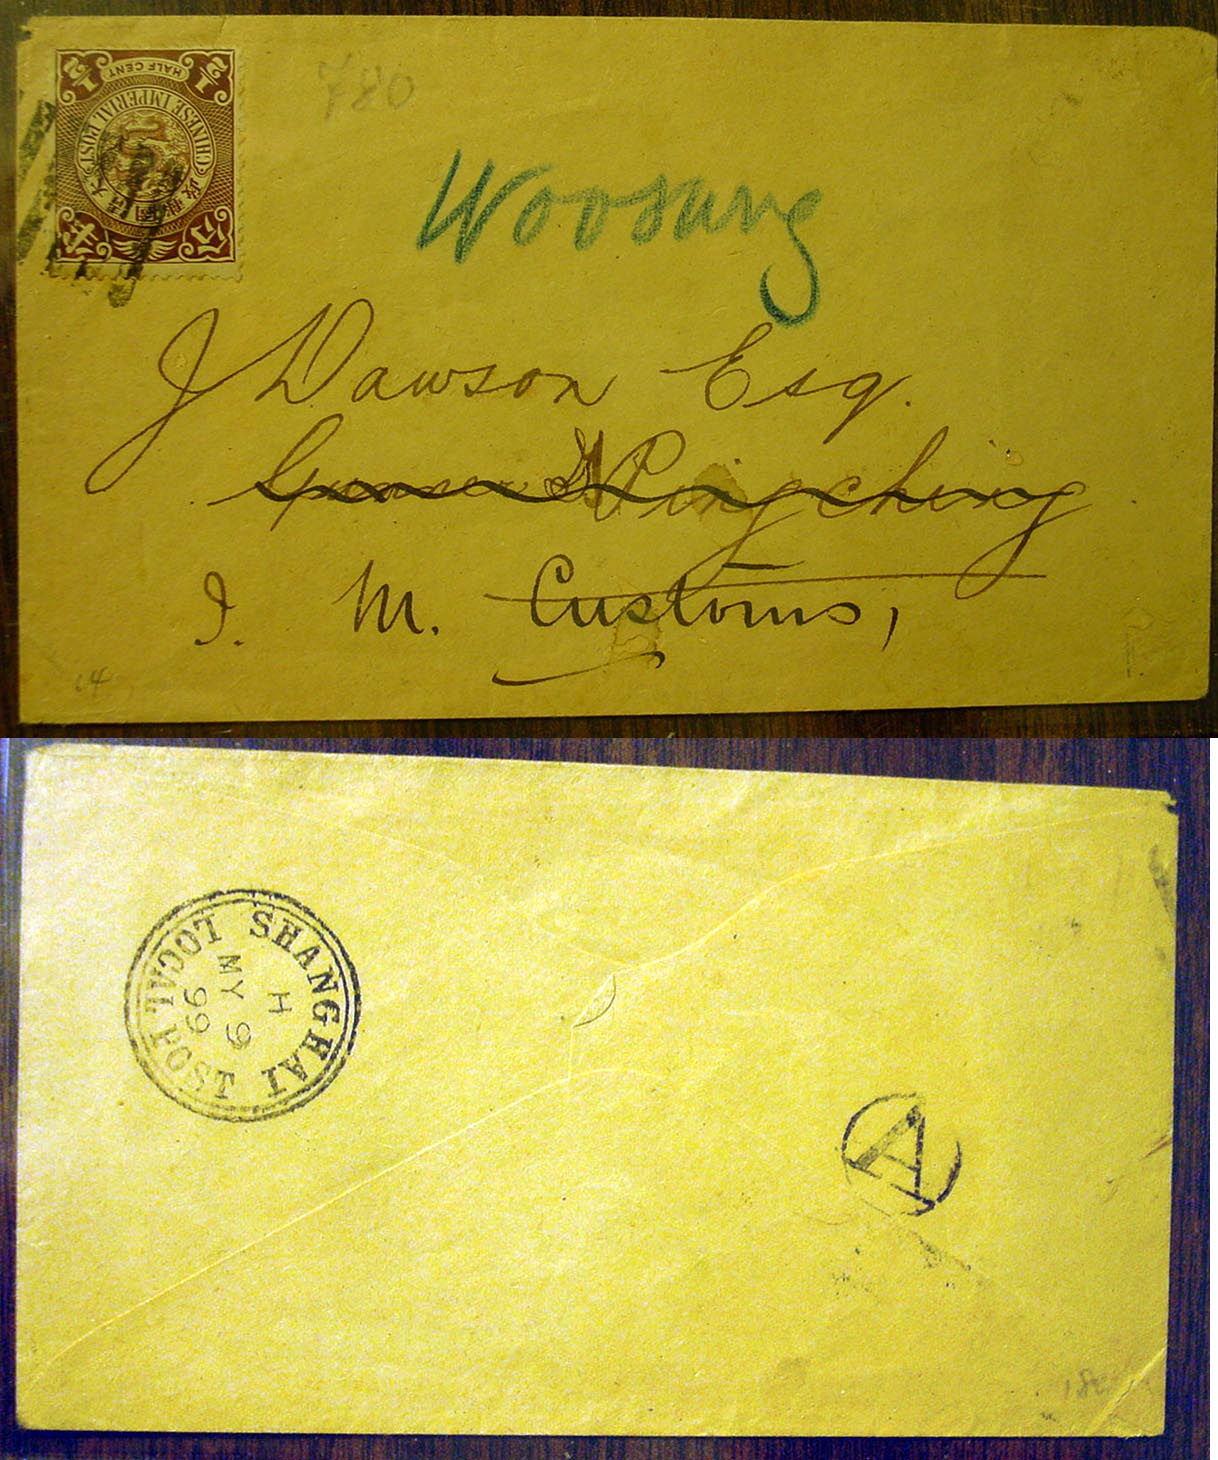 1/2 HALF CENT 1/2
CHINESE IMPERIAL POST
大清國郵政
半分
780
Woosung
J Dawson Esq.
Pingching
I. M. Customs,
SHANGHAI LOCAL POST
H
MY 9
99
A